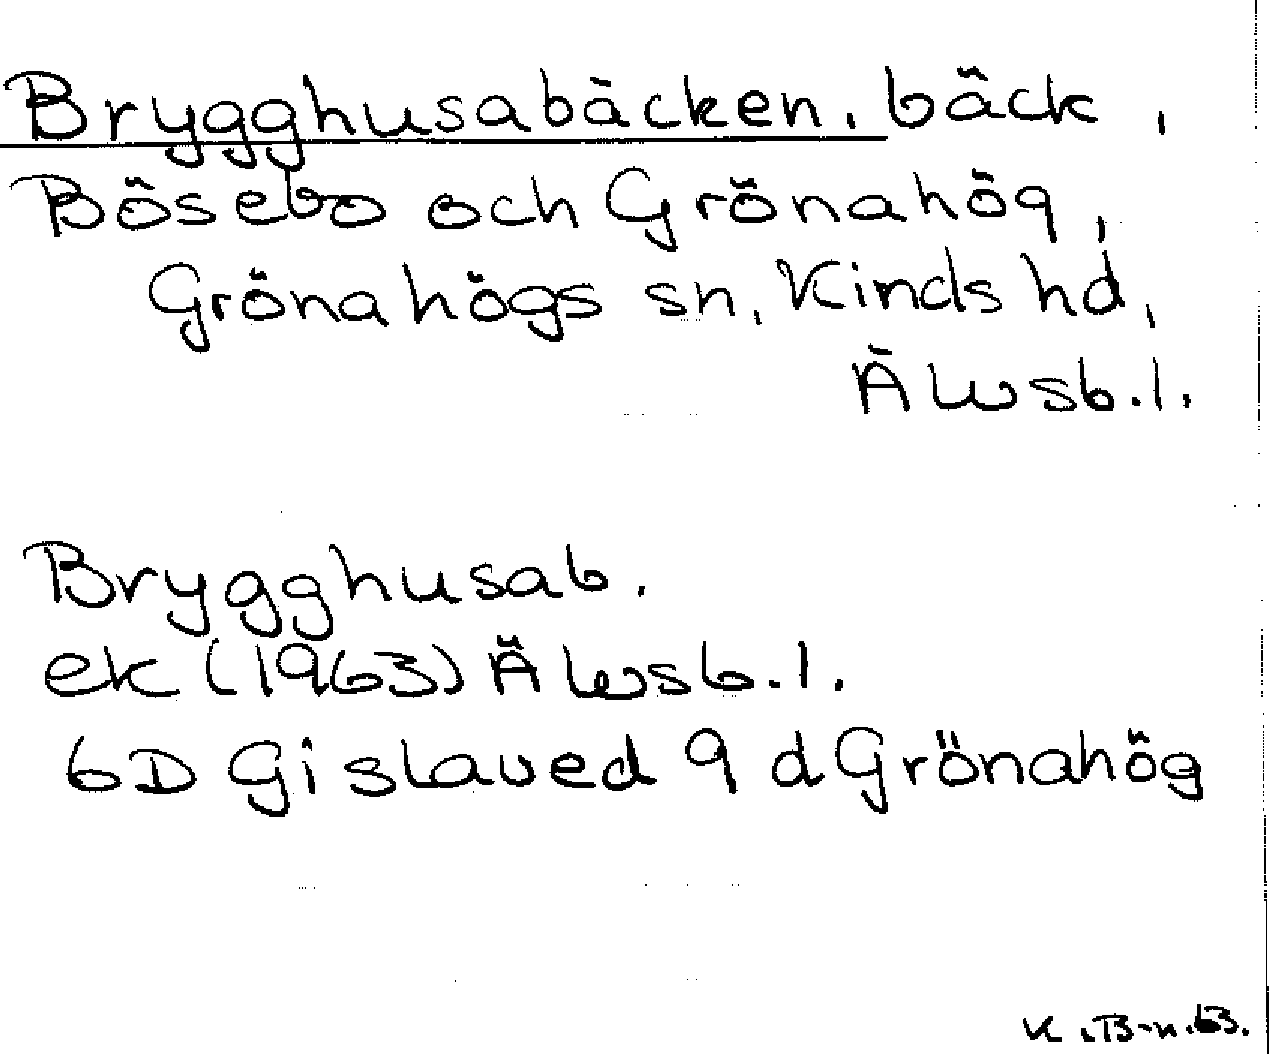 Brygghusabäcken, bäck,
Bösebo och Grönahög,
Grönahögs sn, Kinds hd,
Älvsb.l.
Brygghusab.
ek (1963) Älvsb.l.
6D Gislaved 9 d Grönahög
K.B-n.63.